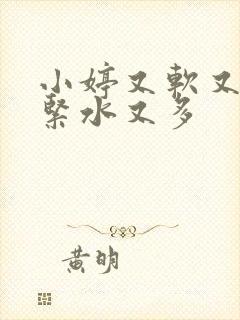 小婷又軟又
緊水又多
黃明